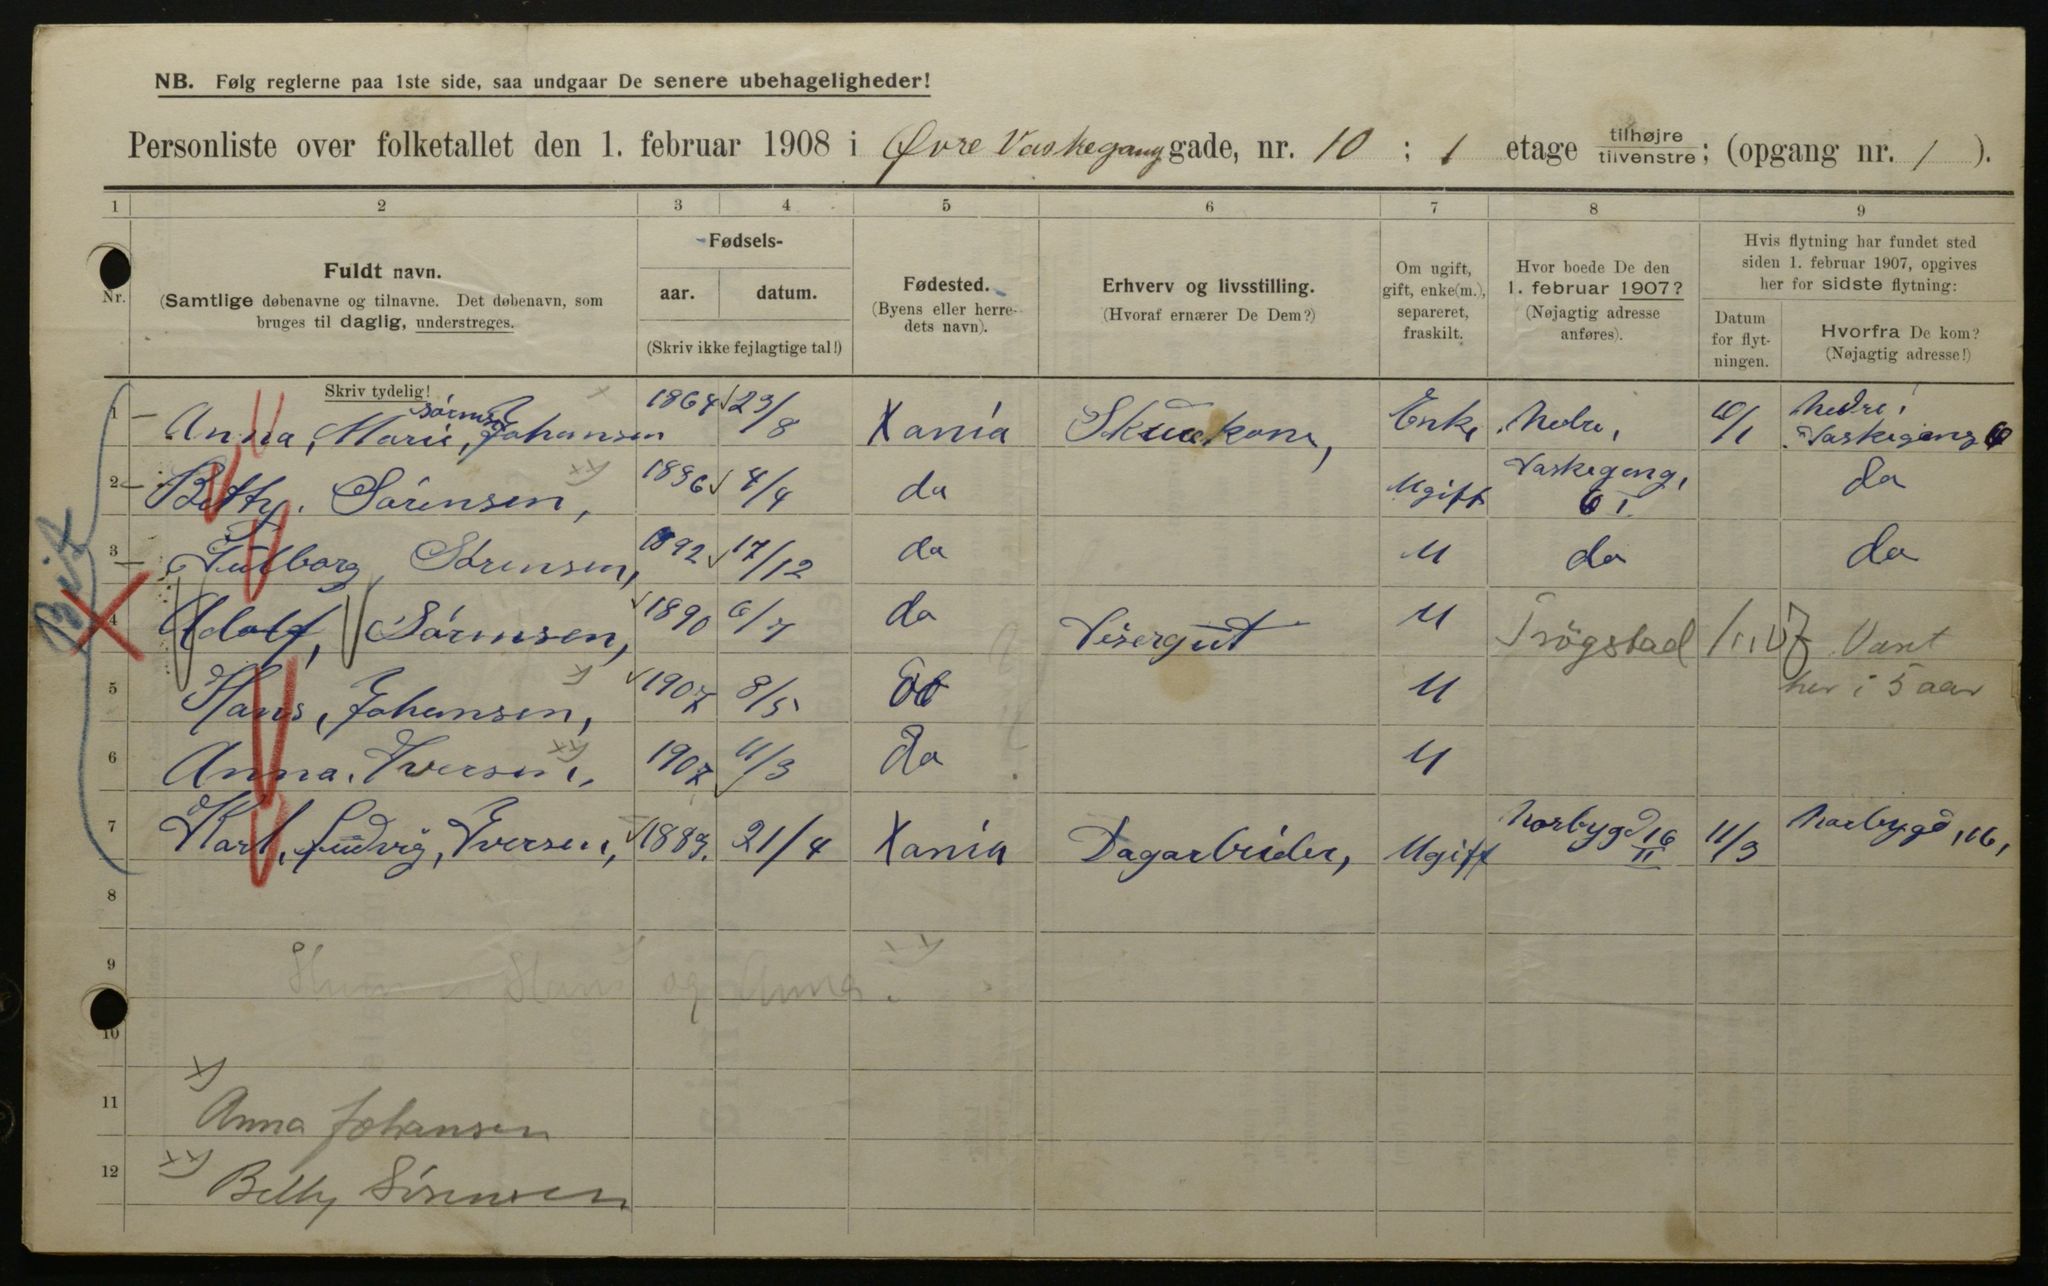 NB. Følg reglerne paa 1ste side, saa undgaar De senere ubehageligheder!
Personliste over folketallet den 1. februar 1908 i Øvre Vaskegang gade, nr. 10 ; 1 etage tilhøjre tilvenstre; (opgang nr. 1 ).
1 2 3 4 5 6 7 8 9
Nr.
Fuldt navn.
(Samtlige døbenavne og tilnavne. Det døbenavn, som
bruges til daglig, understreges.
Skriv tydelig!
Fødsels-
aar. datum.
(Skriv ikke fejlagtige tal!)
Fødested.
(Byens eller herre-
dets navn).
Erhverv og livsstilling.
(Hvoraf ernærer De Dem?)
Om ugift,
gift, enke(m.),
separeret,
fraskilt.
Hvor boede De den
1. februar 1907?
(Nøjagtig adresse
anføres).
Hvis flytning har fundet sted
siden 1. februar 1907, opgives
her for sidste flytning:
Datum
for flyt-
ningen.
Hvorfra De kom?
(Nøjagtig adresse!)
1 Anna, Marie, Johansen 1864 23/8 Xania Enke Nedre, 6/1 Nedre
Vaskegang 6
2 Betty, Sørensen, 1896 4/4 da Ugift Vaskegang, 6 I da
3 Sørensen, 1892 17/12 da U da da
4 Adolf, Sørensen, 1890 6/7 da Visergut U Trøgstad Vært
her i 5 aar
5 Hans, Johansen, 1907 8/5 U
6 Anna, Iversen, 1907 11/3 da U
7 Karl, Ludvig, Iversen, 1883. 21/4 Xania Dagarbeider, Ugift Norbygd 16 II 11/3 Norbygd, 16,
8
9 Hans og Anna.
10
11 x) Anna Johansen
12 xx) Betty Sørensen